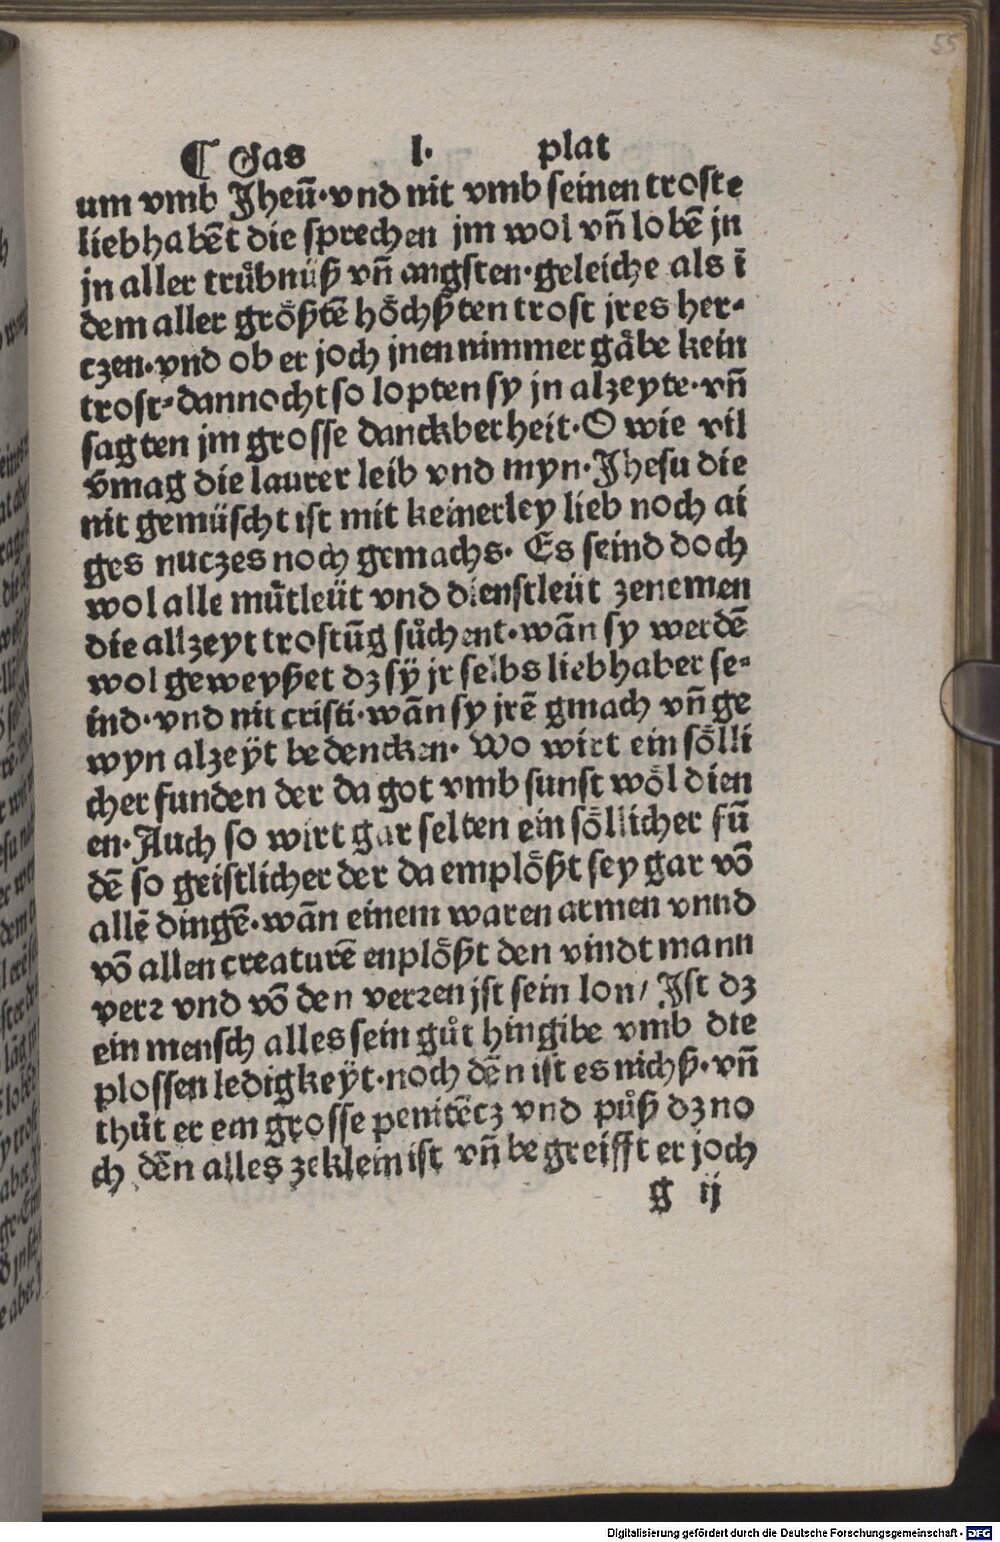 55
¶ Das l· plat
um vmb Jheū·vnd nit vmb seinen troste
liebhabēt die sprechen jm wol vñ lobē jn
jn aller trůbnüß vñ angsten·geleiche als ī
dem aller grőßtē hőchßten trost jres her⸗
czen·vnd ob er joch jnen nimmer gåbe kein
trost⸗dannocht so lopten sy jn alzeyte·vñ
sagten jm grosse danckberheit·O wie vil
v̄mag die laurer leib vnd myn·Jhesu die
nit gemüscht ist mit keinerley lieb noch ai
ges nuczes noch gemachs· Es seind doch
wol alle můtleüt vnd dienstleüt zenemen
die allzeyt trostūg sůchent·wān sy werdē
wol geweyßet dz sÿ jr selbs liebhaber se⸗
ind·vnd nit cristi·wān sy jrē gmach vñ ge
wyn alzeÿt bedencken· Wo wirt ein sőlli
cher funden der da got vmb sunst wől dien
en·Auch so wirt gar selten ein sőllicher fū
dē so geistlicher der da emplőßt sey gar vō
allē dingē·wān einem waren armen vnnd
vō allen creaturē enplőßt den vindt mann
verꝛ vnd vō den verꝛen jst sein lon/ Jst dz
ein mensch alles sein gůt hingibe vmb die
plossen ledigkeÿt·noch dēn ist es nichß·vñ
thůt er ein grosse penitēcz vnd půß dz no
ch dēn alles zeklein ist vñ begreifft er joch
g ij
Digitalisierung gefördert durch die Deutsche Forschungsgemeinschaft - DFG